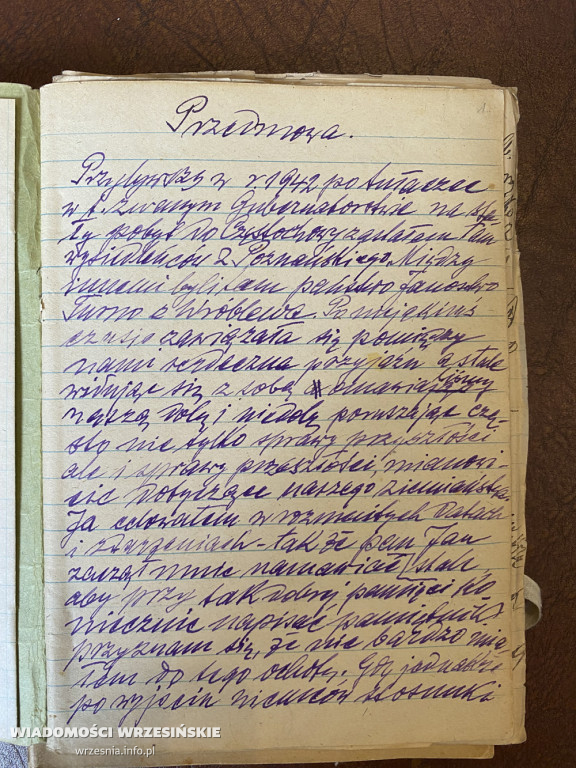 Przedmowa.
Przybywszy w r 1942 po tułaczce
w t. zwanym Gubernatorstwie na sta-
ły pobyt do Częstochowy zastałem tam
wysiedleńców z Poznańskiego. Między
innemi byli tam państwo Janostwo
Turno z Wróblewa. Po niejakimś
czasie zawiązała się pomiędzy
nami serdeczna przyjaźń a stale
widując się z sobą omawialiśmy
naszą dolę i niedolę poruszając czę-
sto nie tylko sprawy przyszłości
ale i sprawy przeszłości, mianowi-
cie dotyczące naszego ziemiaństwa
Ja celowałem w rozmaitych datach
i zdarzeniach - tak że pan Jan
zaczął mnie namawiać
aby przy tak dobrej pamięci ko-
niecznie napisać pamiętnik.
przyznam się, że nie bardzo mia-
łem do tego ochoty. Gdy jednakże
po wyjściu niemców stosunki
WIADOMOŚCI WRZESIŃSKIE
wrzesnia.info.pl